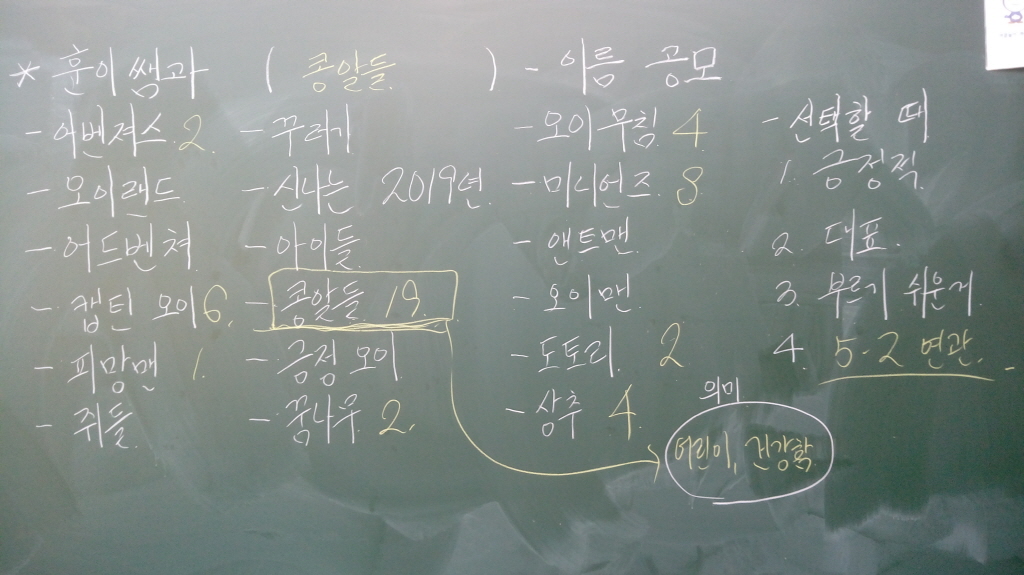 * 훈이쌤과 ( 콩알들 ) - 이름 공모
- 어벤져스 2.
- 오이랜드
- 어드벤쳐
- 캡틴 오이 6.
- 피망맨 1.
- 쥐들
- 꾸러기
- 신나는 2019년
- 아이들
- 콩알들 19.
- 긍정 오이
- 꿈나무 2.
- 오이무침 4
- 미니언즈 8
- 앤트맨
- 오이맨
- 도토리 2
- 상추 4
- 선택할 때
1. 긍정적
2. 대표.
3. 부르기 쉬운게
4. 5-2 연관.
의미
어린이, 건강함